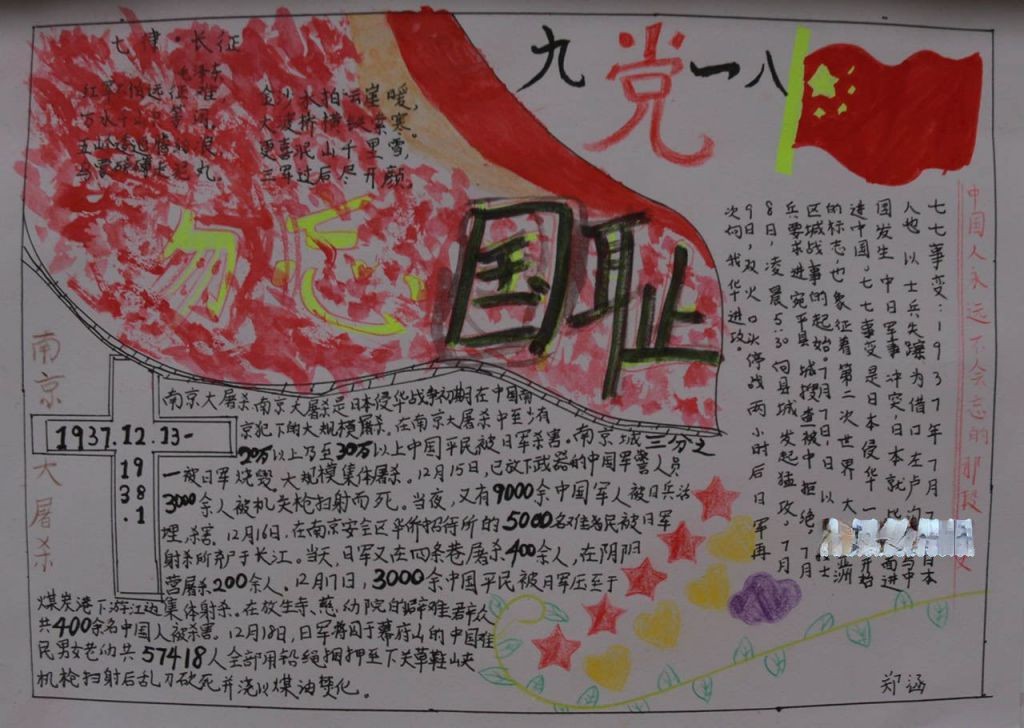 九党一八
七律·长征
红军 远征难
万水千山 等闲
金沙水拍云崖暖,
大渡桥横铁索寒。
更喜岷山千里雪,
三军过后尽开颜。
勿忘国耻
中国人永远不会忘的那段
七七事变:1937年7月7
人也以士兵失踪为借口在卢沟
国发生中日军事冲突,日本就
进中国。七七事变是日本侵华
的标志,也象征着第二次世界大
区城战事的起始。7月7日,日以
兵要求进宛平县城搜查被中拒绝,7月
8日,凌晨5:30向县城发起猛攻,7月
9日,双火口头停战两小时后日军再
次向我华进攻。
南京大屠杀
1937.12.13-
19
38
.1
南京大屠杀南京大屠杀是日本侵华战争初期在中国南
京犯下的大规模屠杀。在南京大屠杀中至少有
20万以上乃至30万以上中国平民被日军杀害。南京城三分之
一被日军烧毁大规模集体屠杀。12月15日,已放下武器的中国军警人员
3000余人被机关枪扫射而死。当夜,又有9000余中国军人被日兵活
埋杀害。12月16日,在南京安全区华侨招待所的5000名难民被日军
射杀所弃尸于长江。当天,日军又在四条巷屠杀400余人,在阴阳
营屠杀200余人。12月17日,3000余中国平民被日军压至于
煤炭港下游江边集体射杀。在放生寺、慈幼院的避难群众
共400余名中国人被杀害。12月18日,日军将囚于幕府山的中国难
民男女老幼共57418人全部用铅绳捆押至下关草鞋山夹
机枪扫射后乱刀砍死并浇以煤油焚化。
郑涵